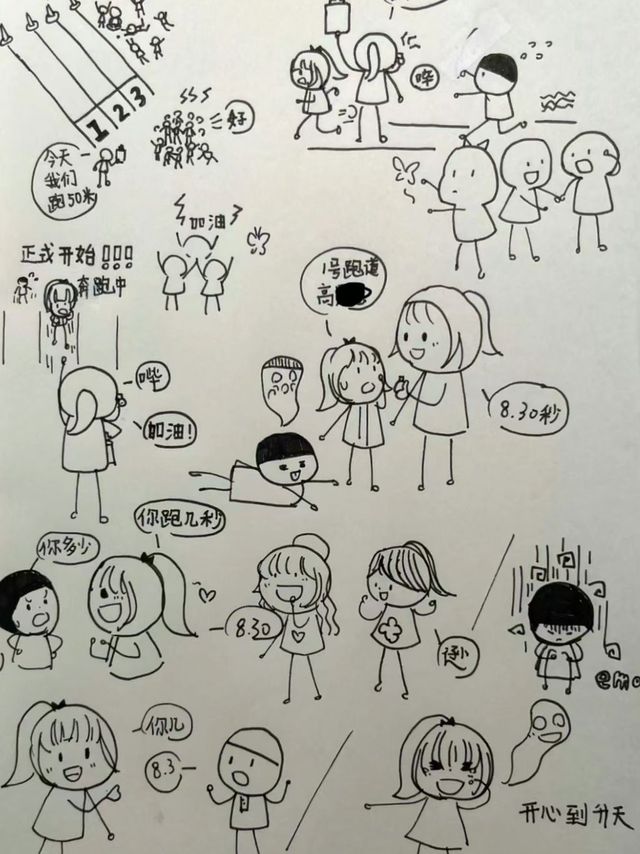 1 2 3
今天
我们
跑50米
好
哗
加油
正式开始!!!
奔跑中
哔
加油!
1号跑道
高
8.30秒
你多少
你跑几秒
8.30
emo
你几
8.3
开心到升天